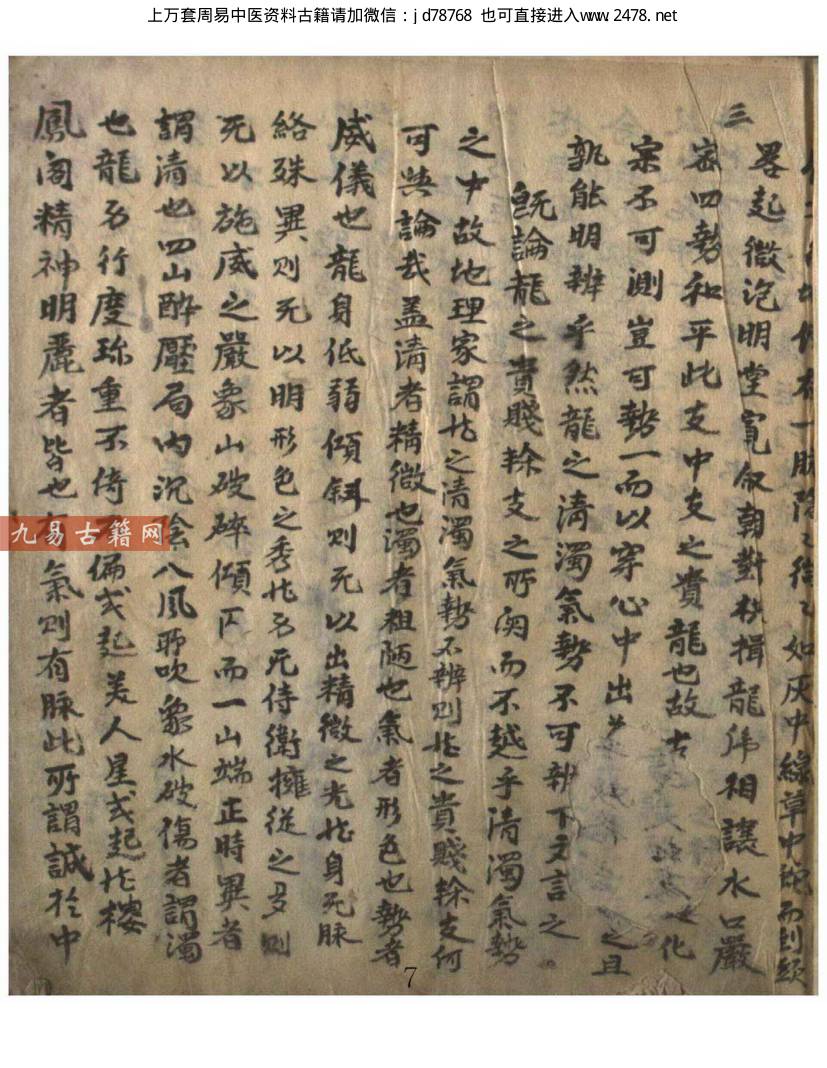 上万套周易中医资料古籍请加微信：jd78768 也可直接进入www.2478.net
一脉 如灰中線草中蛇而到頭
三
畧起微泡明堂寬 朝對拱揖龍虎相讓水口嚴
密四勢和平此支中支之貴龍也故古 化
宗不可測豈可勢一而以穿心中出 之且
孰能明辨乎然龍之清濁氣勢不可辨下文言之
既論龍之貴賤榦支之所 而不越乎清濁氣勢
之中故地理家謂龙之清濁氣勢不辨則龙之貴賤榦支何
可與論哉盖清者精微也濁者粗陋也氣者形色也勢者
威儀也龍身低弱傾斜則无以出精微之光龙身无脉
絡殊異則无以明形色之秀龙 无侍衛擁從之 則
无以施威之嚴象山破碎傾 而一山端正時異者
謂清也四山醉壓局内沉陰八風所吹衆水破傷者謂濁
也龍 行度珎重不倚 偏或起美人星或起龙樓
鳳阁精神明麗者皆也 氣則有脉此所謂誠於中
九易古籍网
7